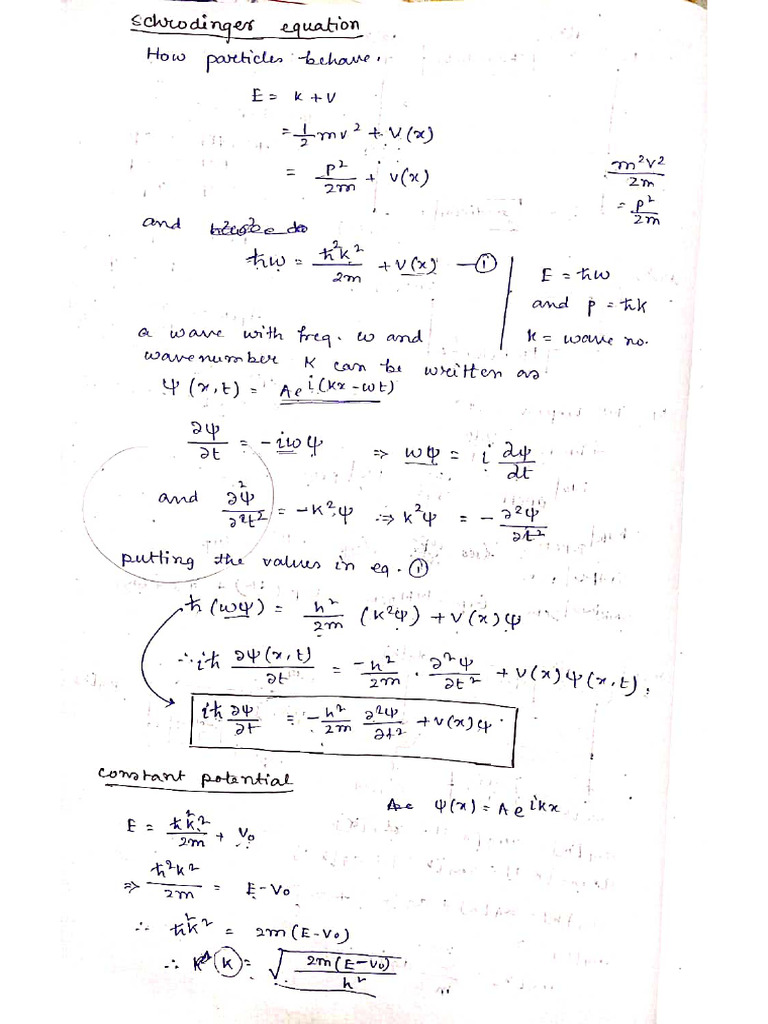 Schrodinger equation
How particles behave.
E = K + V
= 1/2 mv² + V(x)
= p²/2m + V(x)
m²v²/2m
= p²/2m
and
ħω = ħ²k²/2m + V(x) —①
E = ħω
and p = ħk
k = wave no.
a wave with freq. ω and
wavenumber K can be written as
Ψ(x,t) = Ae^i(kx-ωt)
∂Ψ/∂t = -iωΨ ⇒ ωΨ = i ∂Ψ/∂t
and ∂²Ψ/∂²t² = -K²Ψ ⇒ K²Ψ = -∂²Ψ/∂t²
putting the values in eq. ①
ħ(ωΨ) = ħ²/2m (K²Ψ) + V(x)Ψ
∴ iħ ∂Ψ(x,t)/∂t = -ħ²/2m . ∂²Ψ/∂t² + V(x)Ψ(x,t).
iħ ∂Ψ/∂t = -ħ²/2m ∂²Ψ/∂t² + V(x)Ψ.
Constant potential
Ψ(x) = Ae^ikx
E = ħ²k²/2m + V₀
⇒ ħ²k²/2m = E - V₀
∴ ħ²k² = 2m(E-V₀)
∴ K = √(2m(E-V₀)/ħ²)